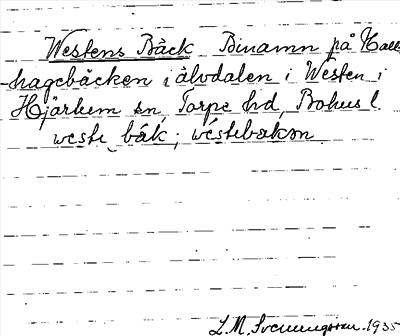 Westens Bäck Binamn på Hall-
hagebäcken i älvdalen i Westen i
Hjärtum sn, Torpe hd, Bohus l.
weste bäk; wéstebækən
L.M. Svenungsson. 1935